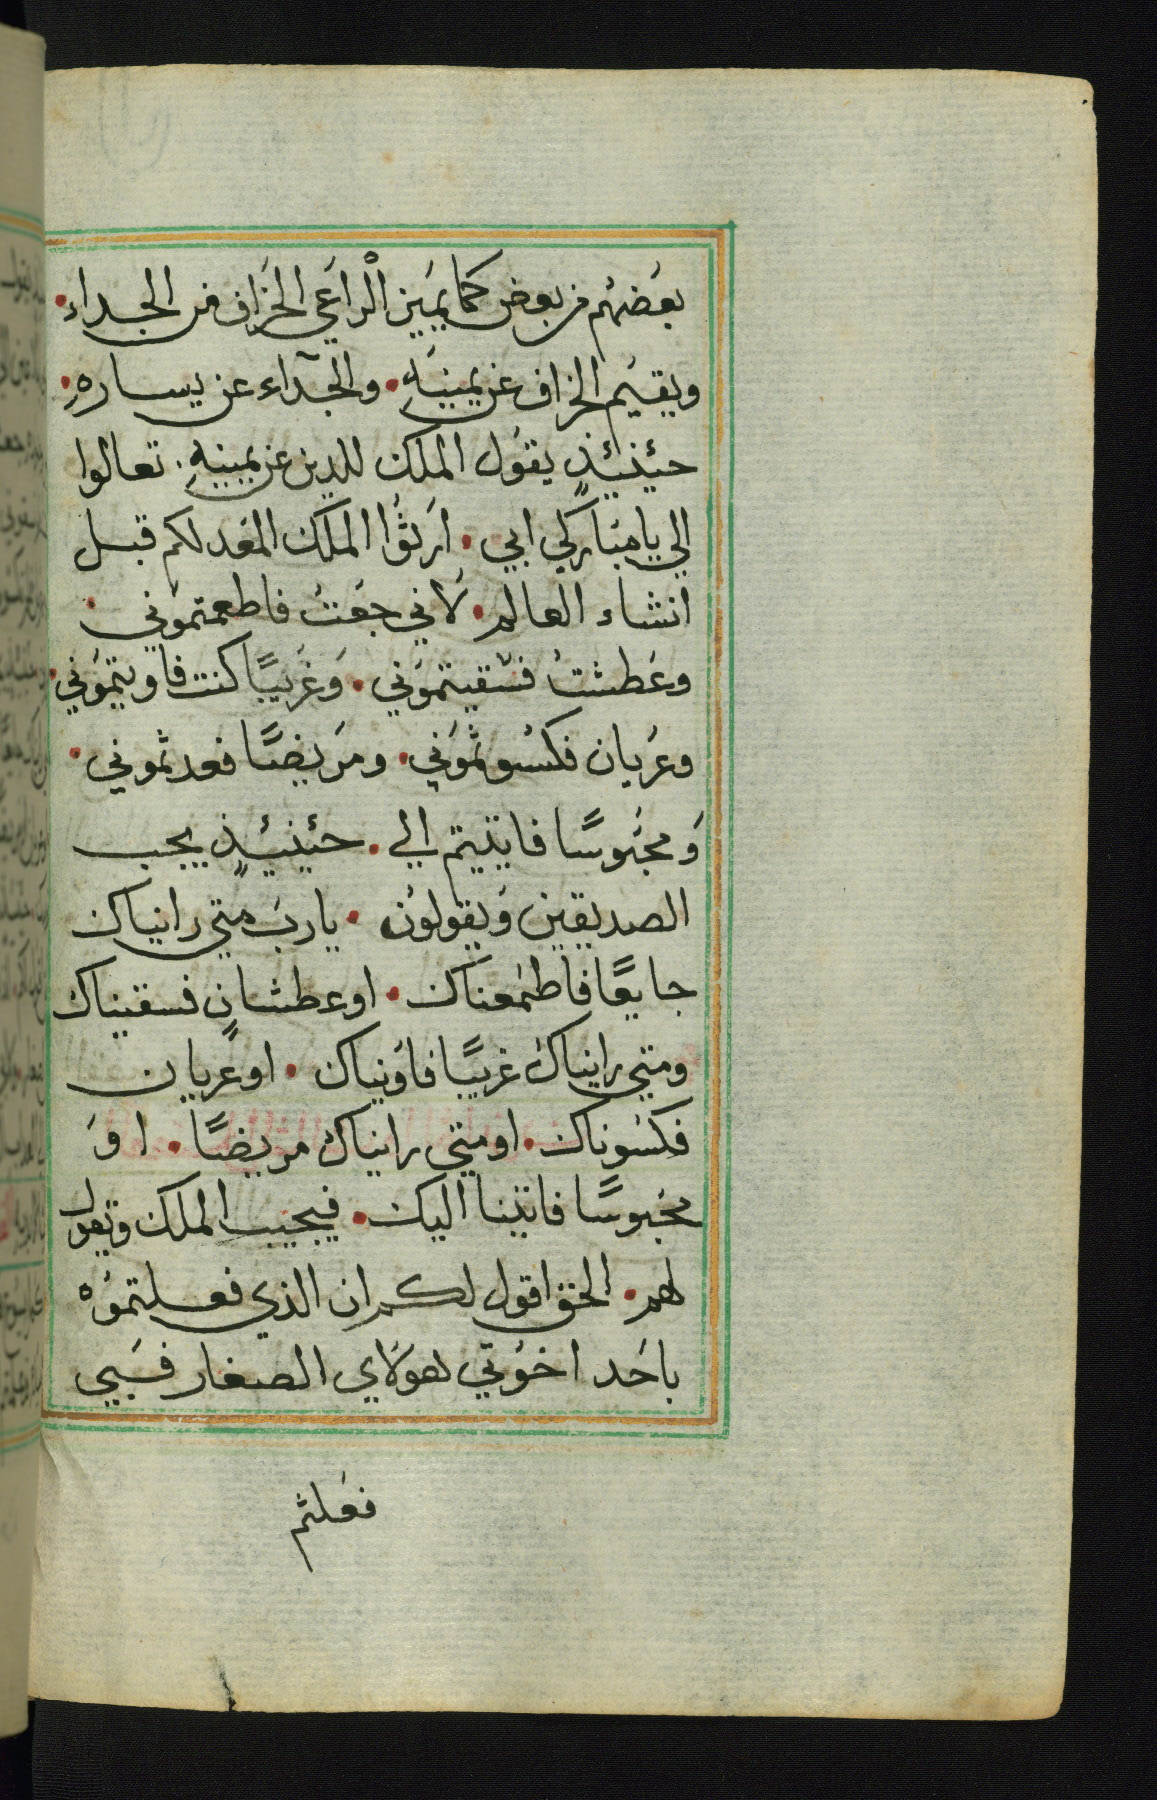 بعَضهُم من بعض كما يمَيز الْراعَي الخَراف من الجداء•
ويقيَم الخراف عن يمينَهِ• والجدآء عن يسارهِ•
حيُنيئذٍ يقوُل الملك للدين عن يمينهِ. تعالوا
الي يا مبَاركي ابي• ارَثوُا الملك المعَد لكم قبل
انشاء العالم• لَاني جعَتُ فاطعمتموُني•
وعَطشتُ فسَقيتموَني• وَغرَيبًا كنت فاويتموَني•
وعرُيان فكسُوتموَني• ومرَيضًا فعدتموني•
وَمحبَوسًا فاتيتم الي• حيُنيئذٍ يجيب
الصديقين وَيقولوُن• يارب متي رانياك
جايعًا فاطمَعناك• اوعطشانٍ فسقيناك
ومتي رايناك غريبًا فاوَيناك• اوعُريان
فكسَوناك• اومتي رانياك مريضًا• اوَ
محبوسًا فاتينا اليك• فيجيب الملك ويقول
لهم• الحق اقول لكم ان الذي فعلتموُه
باحَد اخوُتي هولَاي الصغار فبَي
فعَلتم